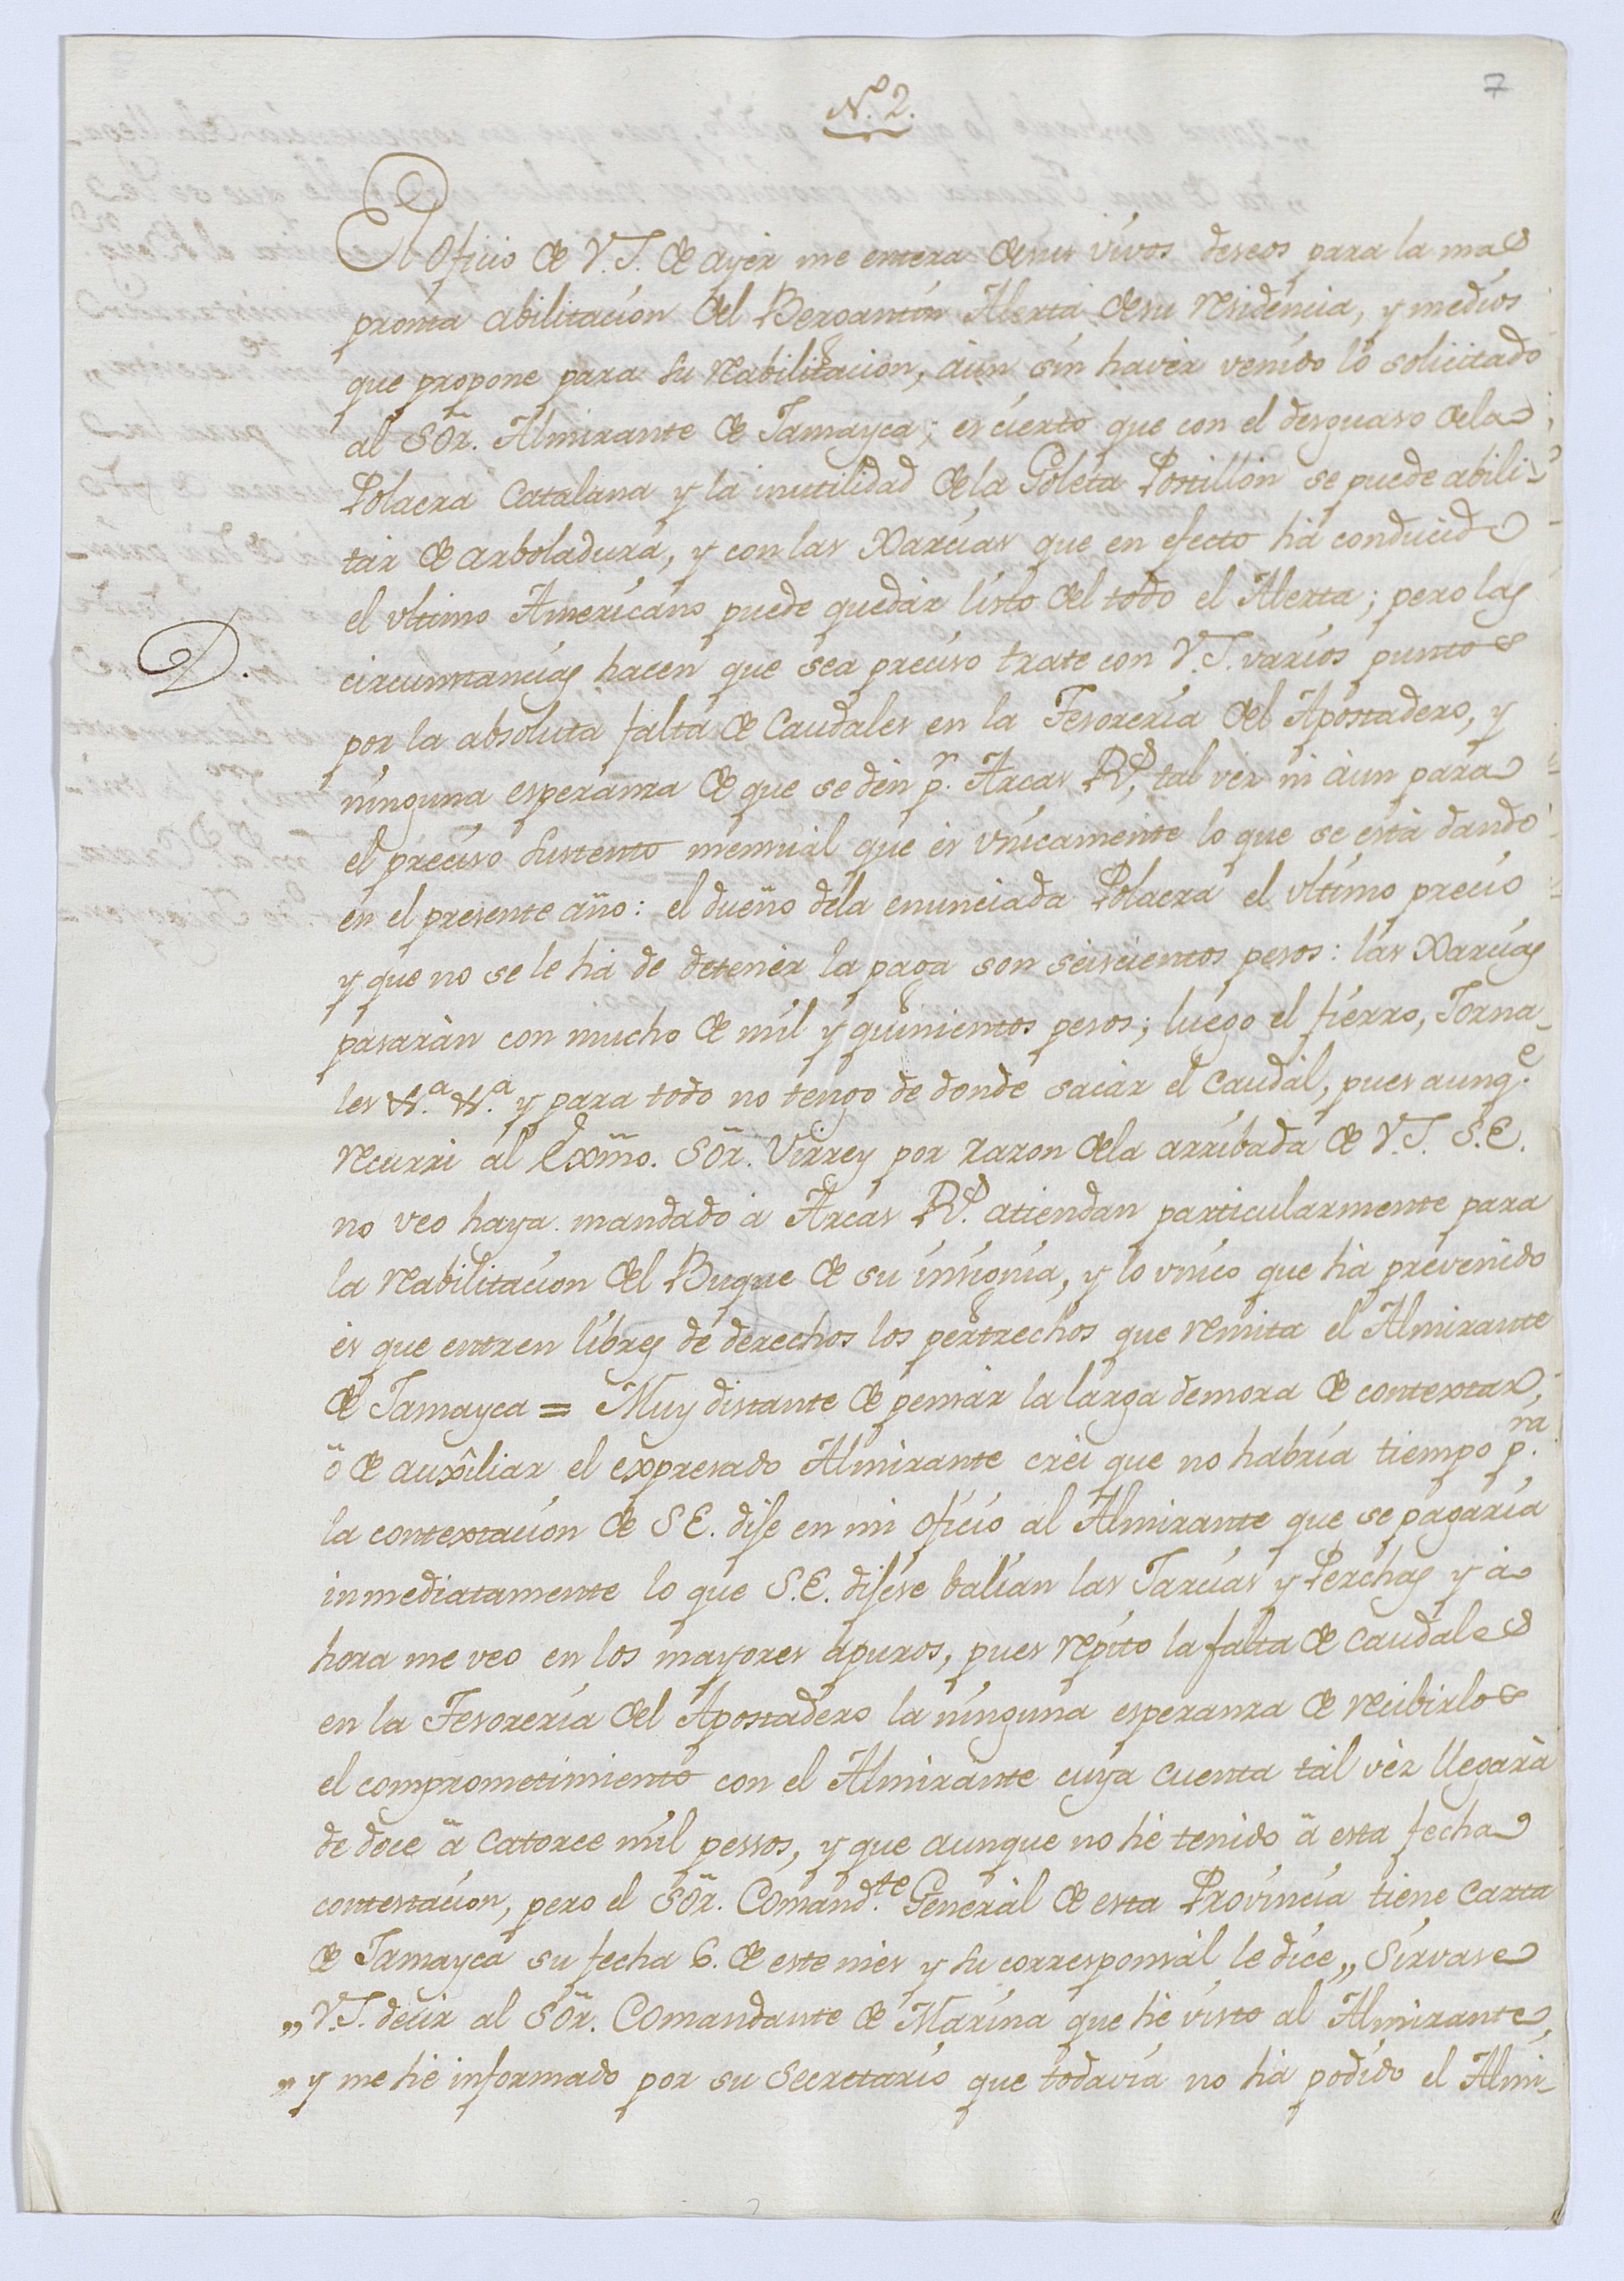 7
Nº. 2.
El Oficio de V.S. de ayer me entera desus vivos deseos para la mas
pronta abilitacion del Bergantin Alerta desu residencia, y medios
que propone para su reabilitacion, aun sin haver venido lo solicitado
al Sõr. Almirante de Jamayca; es cierto que con el desguaso dela
Polacra Catalana y la inutilidad dela Goleta Postillon se puede abili-
tar de arboladura, y con las Xarcias que en efecto há conducido
el vltimo Americano puede quedár listo del todo el Alerta; pero las
D.
circunstancias hacen que sea preciso trate con V.S. varios puntos
por la absoluta falta de Caudales en la Tesoreria del Apostadero, y
ninguna esperanza de que se dén pr. Arcas Rs. tal vez ni áun para
el preciso sustento mensuál que és vnicamente lo que se está dando
en el presente año: el dueño dela enunciada Polacra el vltimo precio
y que no se le há de detenér la paga son seiscientos pesos: las Xarcias
pasarán con mucho de mil y quinientos pesos; luego el fierro, Jorna-
les &.a &.a y para todo no tengo de donde sacár el Caudál, pues aunq.e
recurri ál Exm̃o. Sõr. Virrey por razon dela arribada de V.S. S.E.
no veo haya mandado á Arcas Rs. atiendan particularmente para
la reabilitacion del Buque de su insignia, y lo vnico que há prevenido
és que entren libres de derechos los pertrechos que remita el Almirante
de Jamayca = Muy distante de pensár la larga demora de contextar,
ö de auxîliar el expresado Almirante crei que no habria tiempo p.ra
la contextacion de S E. dije en mi oficio al Almirante que se pagaria
inmediatamente lo que S.E. dijese balian las Jarcias y Perchas y á
hora me veo en los mayores apuros, pues repito la falta de caudales
en la Tesoreria del Apostadero la ninguna esperanza de recibirlos
el comprometimiento con el Almirante cuya cuenta tál véz llegará
de doce ä catorce mil pessos, y que aunque no hé tenido ä esta fecha
contestacion, pero el Sõr. Comand.te Generál de esta Provincia tiene carta
de Jamayca su fecha 6. de este mes y su corresponsál le dice „ Sirvase
„ V.S. decir al Sõr. Comandante de Marina que hé visto al Almirante,
„ y me hé informado por su Secretario que todavia no há podido el Almi-